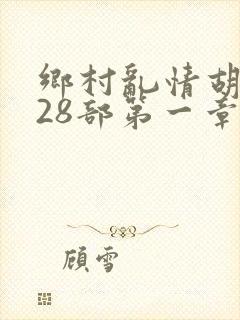 鄉村亂情胡
28部第一章
顧雪